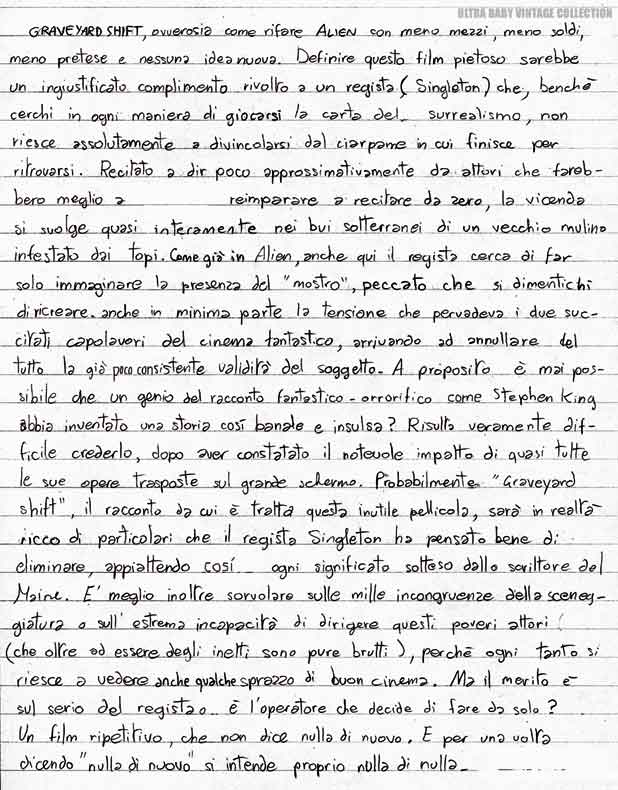 ULTRA BABY VINTAGE COLLECTION
GRAVEYARD SHIFT, ovverosia come rifare ALIEN con meno mezzi, meno soldi,
meno pretese e nessuna idea nuova. Definire questo film pietoso sarebbe
un ingiustificato complimento rivolto a un regista (Singleton) che, benchè
cerchi in ogni maniera di giocarsi la carta del surrealismo, non
riesce assolutamente a divincolarsi dal ciarpame in cui finisce per
ritrovarsi. Recitato a dir poco approssimativamente da attori che fareb-
bero meglio a reimparare a recitare da zero, la vicenda
si svolge quasi interamente nei bui sotterranei di un vecchio mulino
infestato dai topi. Come già in Alien, anche qui il regista cerca di far
solo immaginare la presenza del "mostro", peccato che si dimentichi
di ricreare. anche in minima parte la tensione che pervadeva i due suc-
citati capolavori del cinema fantastico, arrivando ad annullare del
tutto la già poco consistente validità del soggetto. A proposito è mai pos-
sibile che un genio del racconto fantastico-orrorifico come Stephen King
abbia inventato una storia così banale e insulsa? Risulta veramente dif-
ficile crederlo, dopo aver constatato il notevole impatto di quasi tutte
le sue opere trasposte sul grande schermo. Probabilmente "Graveyard
shift", il racconto da cui è tratta questa inutile pellicola, sarà in realtà
ricco di particolari che il regista Singleton ha pensato bene di
eliminare, appiattendo così ogni significato sotteso dallo scrittore del
Maine. E' meglio inoltre sorvolare sulle mille incongruenze della sceneg-
giatura o sull'estrema incapacità di dirigere questi poveri attori
(che oltre ad essere degli inetti sono pure brutti), perchè ogni tanto si
riesce a vedere anche qualche sprazzo di buon cinema. Ma il merito è
sul serio del regista o è l'operatore che decide di fare da solo?
Un film ripetitivo, che non dice nulla di nuovo. E per una volta
dicendo "nulla di nuovo" si intende proprio nulla di nulla.